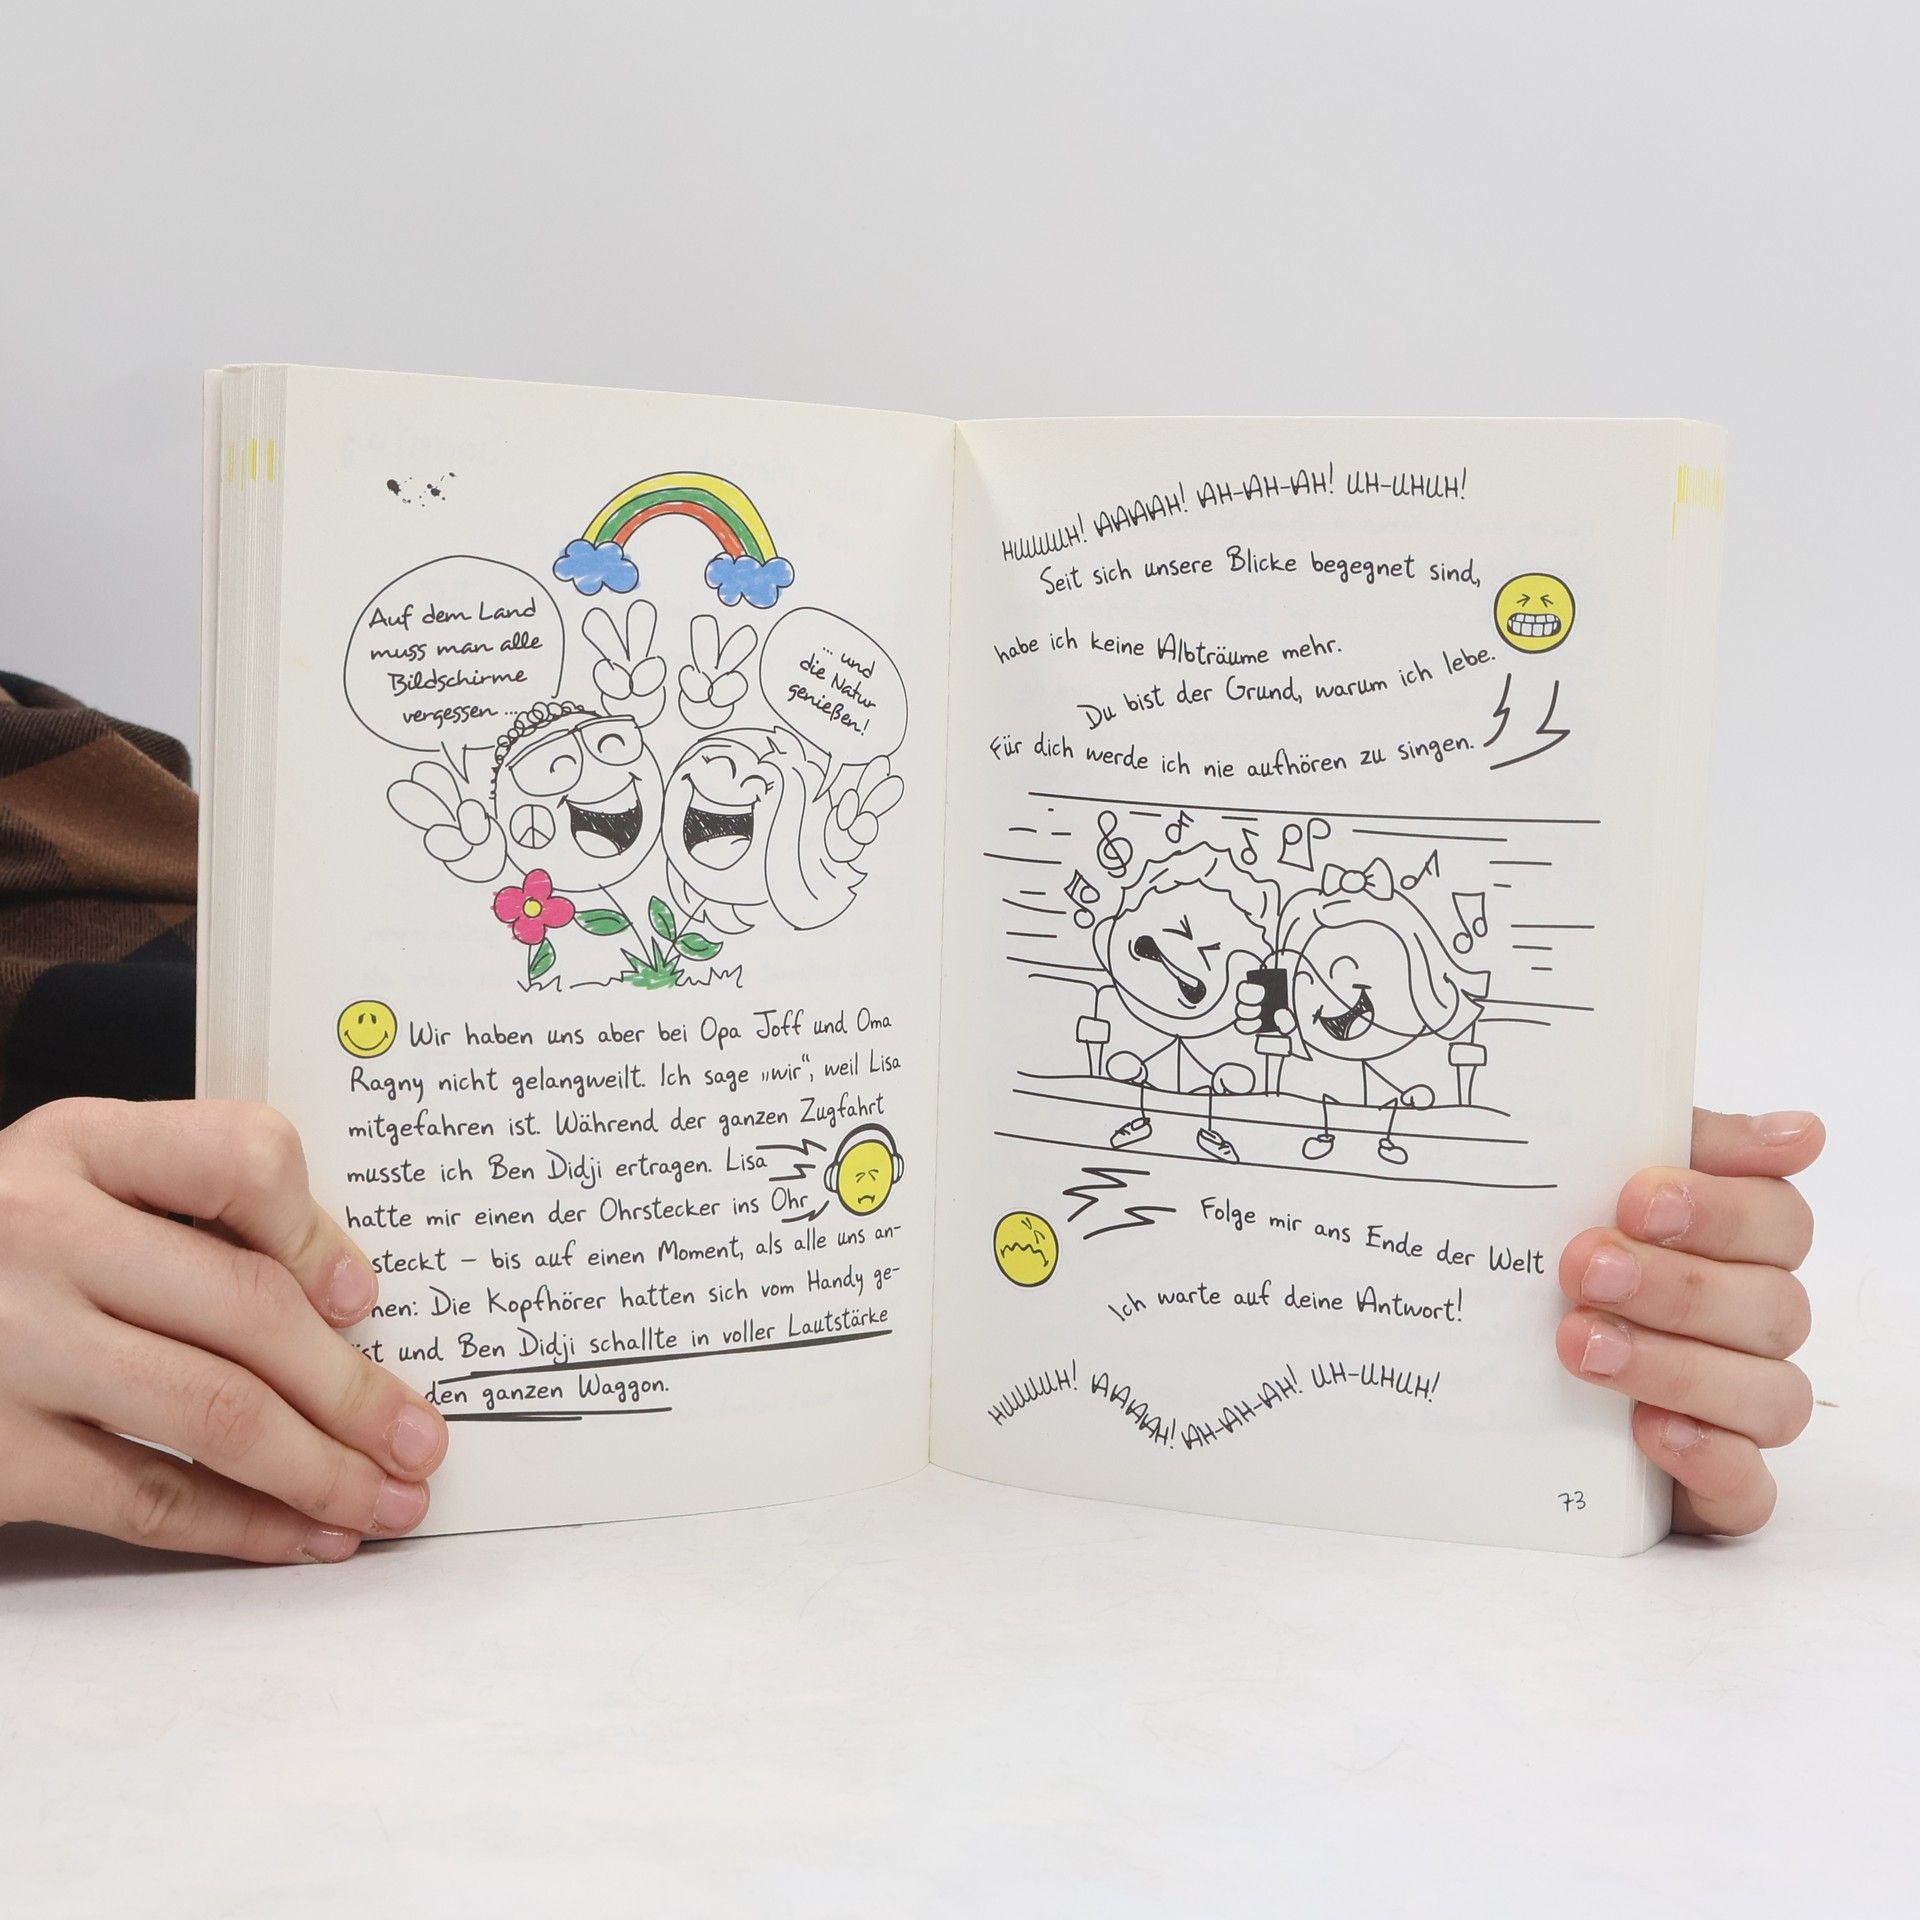 Auf dem Land
muss man alle
Bildschirme
vergessen ...
... und
die Natur
genießen!
Wir haben uns aber bei Opa Joff und Oma
Ragny nicht gelangweilt. Ich sage „wir“, weil Lisa
mitgefahren ist. Während der ganzen Zugfahrt
musste ich Ben Didji ertragen. Lisa
hatte mir einen der Ohrstecker ins Ohr
steckt – bis auf einen Moment, als alle uns an-
nen: Die Kopfhörer hatten sich vom Handy ge-
st und Ben Didji schallte in voller Lautstärke
den ganzen Waggon.
HUUUUH! AAAAH! AH-AH-AH! UH-UHUH!
Seit sich unsere Blicke begegnet sind,
habe ich keine Albträume mehr.
Du bist der Grund, warum ich lebe.
Für dich werde ich nie aufhören zu singen.
Folge mir ans Ende der Welt
Ich warte auf deine Antwort!
HUUUUH! AAAAH! AH-AH-AH! UH-UHUH!
73